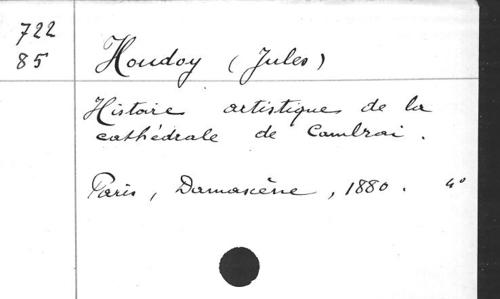 722
85
Houdoy (Jules)
Histoire artistique de la
cathédrale de Cambrai.
Paris, Damascène, 1880. 4°